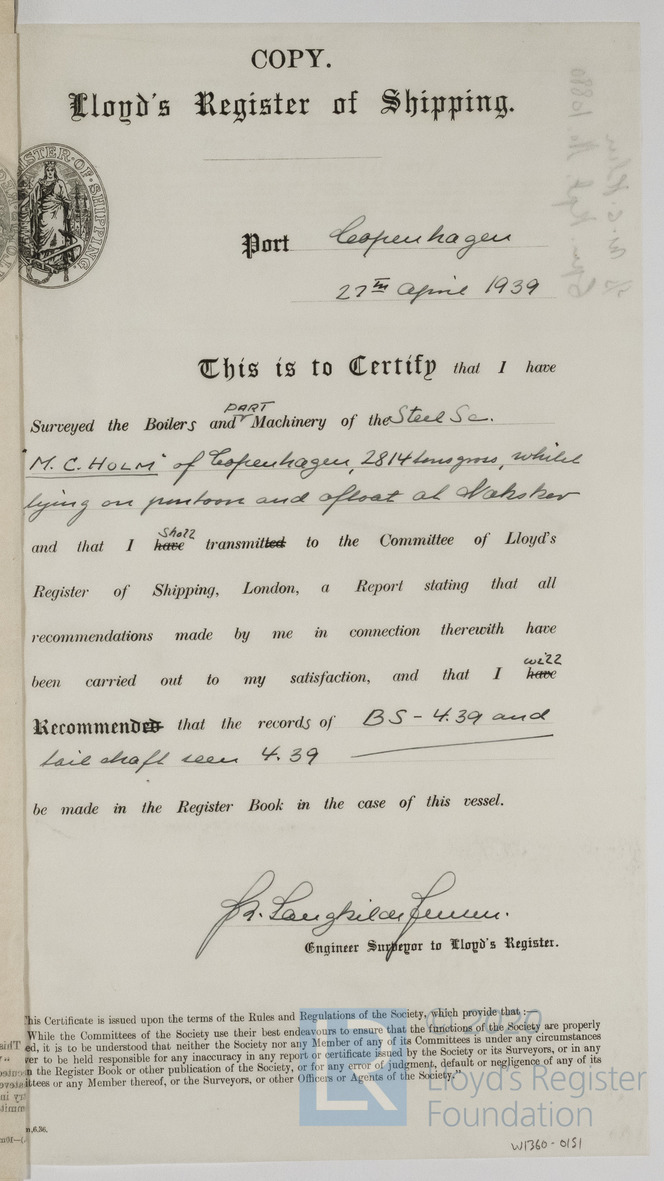 COPY.
Lloyd's Register of Shipping.
Port Copenhagen
27TH April 1939
This is to Certify that I have
PART
Surveyed the Boilers and Machinery of the Steel Sc.
"M. C. HOLM" of Copenhagen, 2814 tons gross, whilst
lying on pontoon and afloat at Nakskov
shall
and that I have transmitted to the Committee of Lloyd's
Register of Shipping, London, a Report stating that all
recommendations made by me in connection therewith have
will
been carried out to my satisfaction, and that I have
Recommended that the records of BS - 4.39 and
tail shaft seen 4.39
be made in the Register Book in the case of this vessel.
Engineer Surveyor to Lloyd's Register.
This Certificate is issued upon the terms of the Rules and Regulations of the Society, which provide that :—
While the Committees of the Society use their best endeavours to ensure that the functions of the Society are properly
ed, it is to be understood that neither the Society nor any Member of any of its Committees is under any circumstances
ver to be held responsible for any inaccuracy in any report or certificate issued by the Society or its Surveyors, or in any
n the Register Book or other publication of the Society, or for any error of judgment, default or negligence of any of its
ittees or any Member thereof, or the Surveyors, or other Officers or Agents of the Society."
LR
© 2020
Lloyd's Register
Foundation
W1360-0151